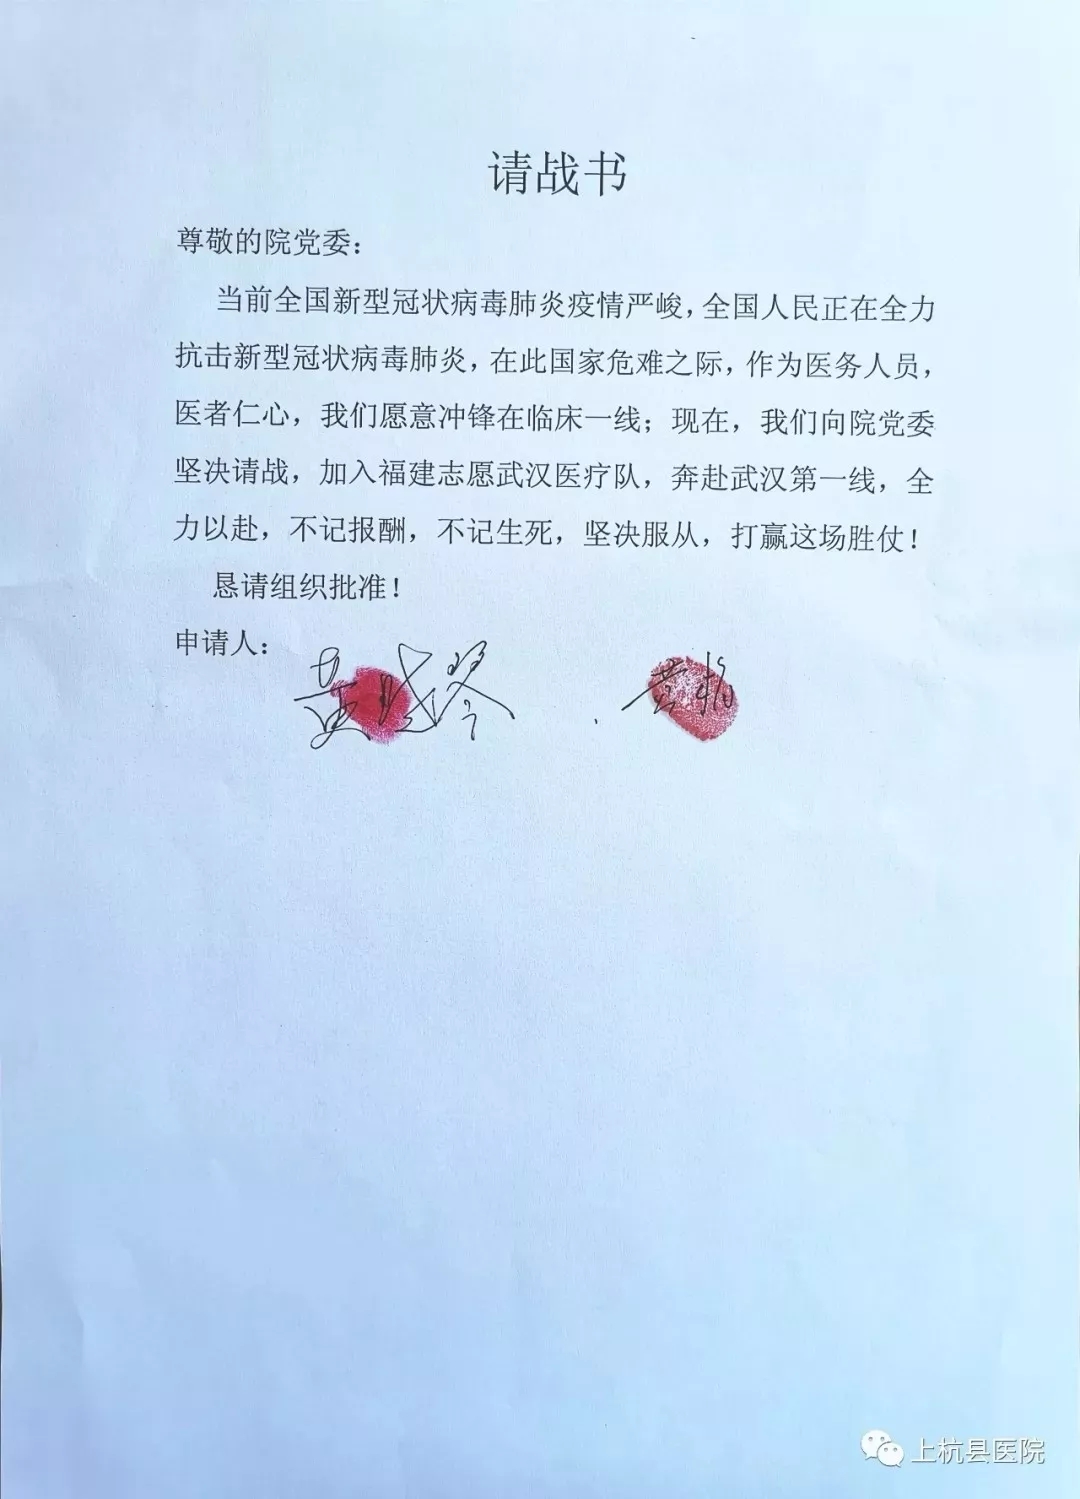 请战书
尊敬的院党委：
当前全国新型冠状病毒肺炎疫情严峻，全国人民正在全力
抗击新型冠状病毒肺炎，在此国家危难之际，作为医务人员，
医者仁心，我们愿意冲锋在临床一线；现在，我们向院党委
坚决请战，加入福建志愿武汉医疗队，奔赴武汉第一线，全
力以赴，不记报酬，不记生死，坚决服从，打赢这场胜仗！
恳请组织批准！
申请人：
上杭县医院